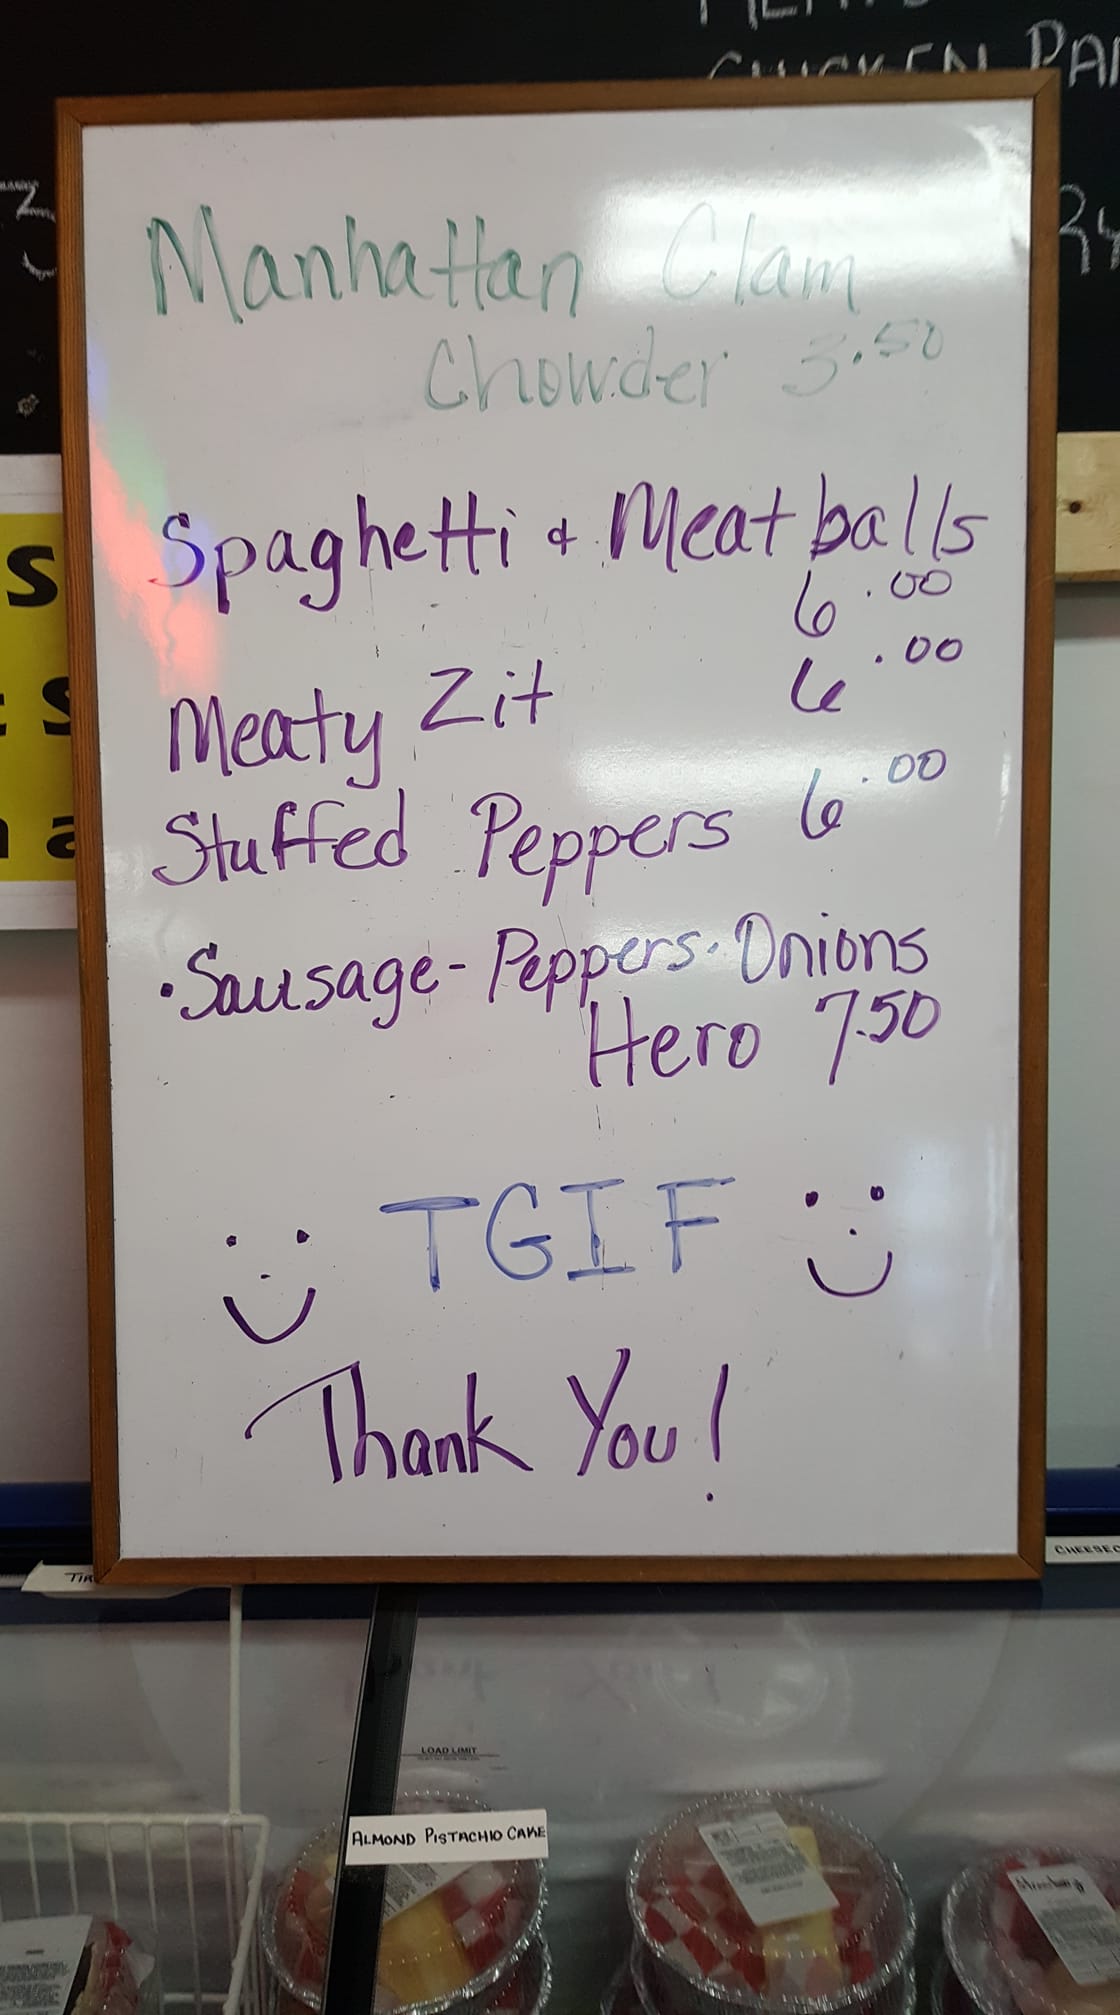 CHICKEN PAR
Manhattan Clam
Chowder 3.50
Spaghetti & Meatballs
6.00
Meaty Zit 6.00
Stuffed Peppers 6.00
·Sausage-Peppers·Onions
Hero 7.50
TGIF
Thank You!
CHEESEC
TIR
LOAD LIMIT
ALMOND PISTACHIO CAKE
Strawberry